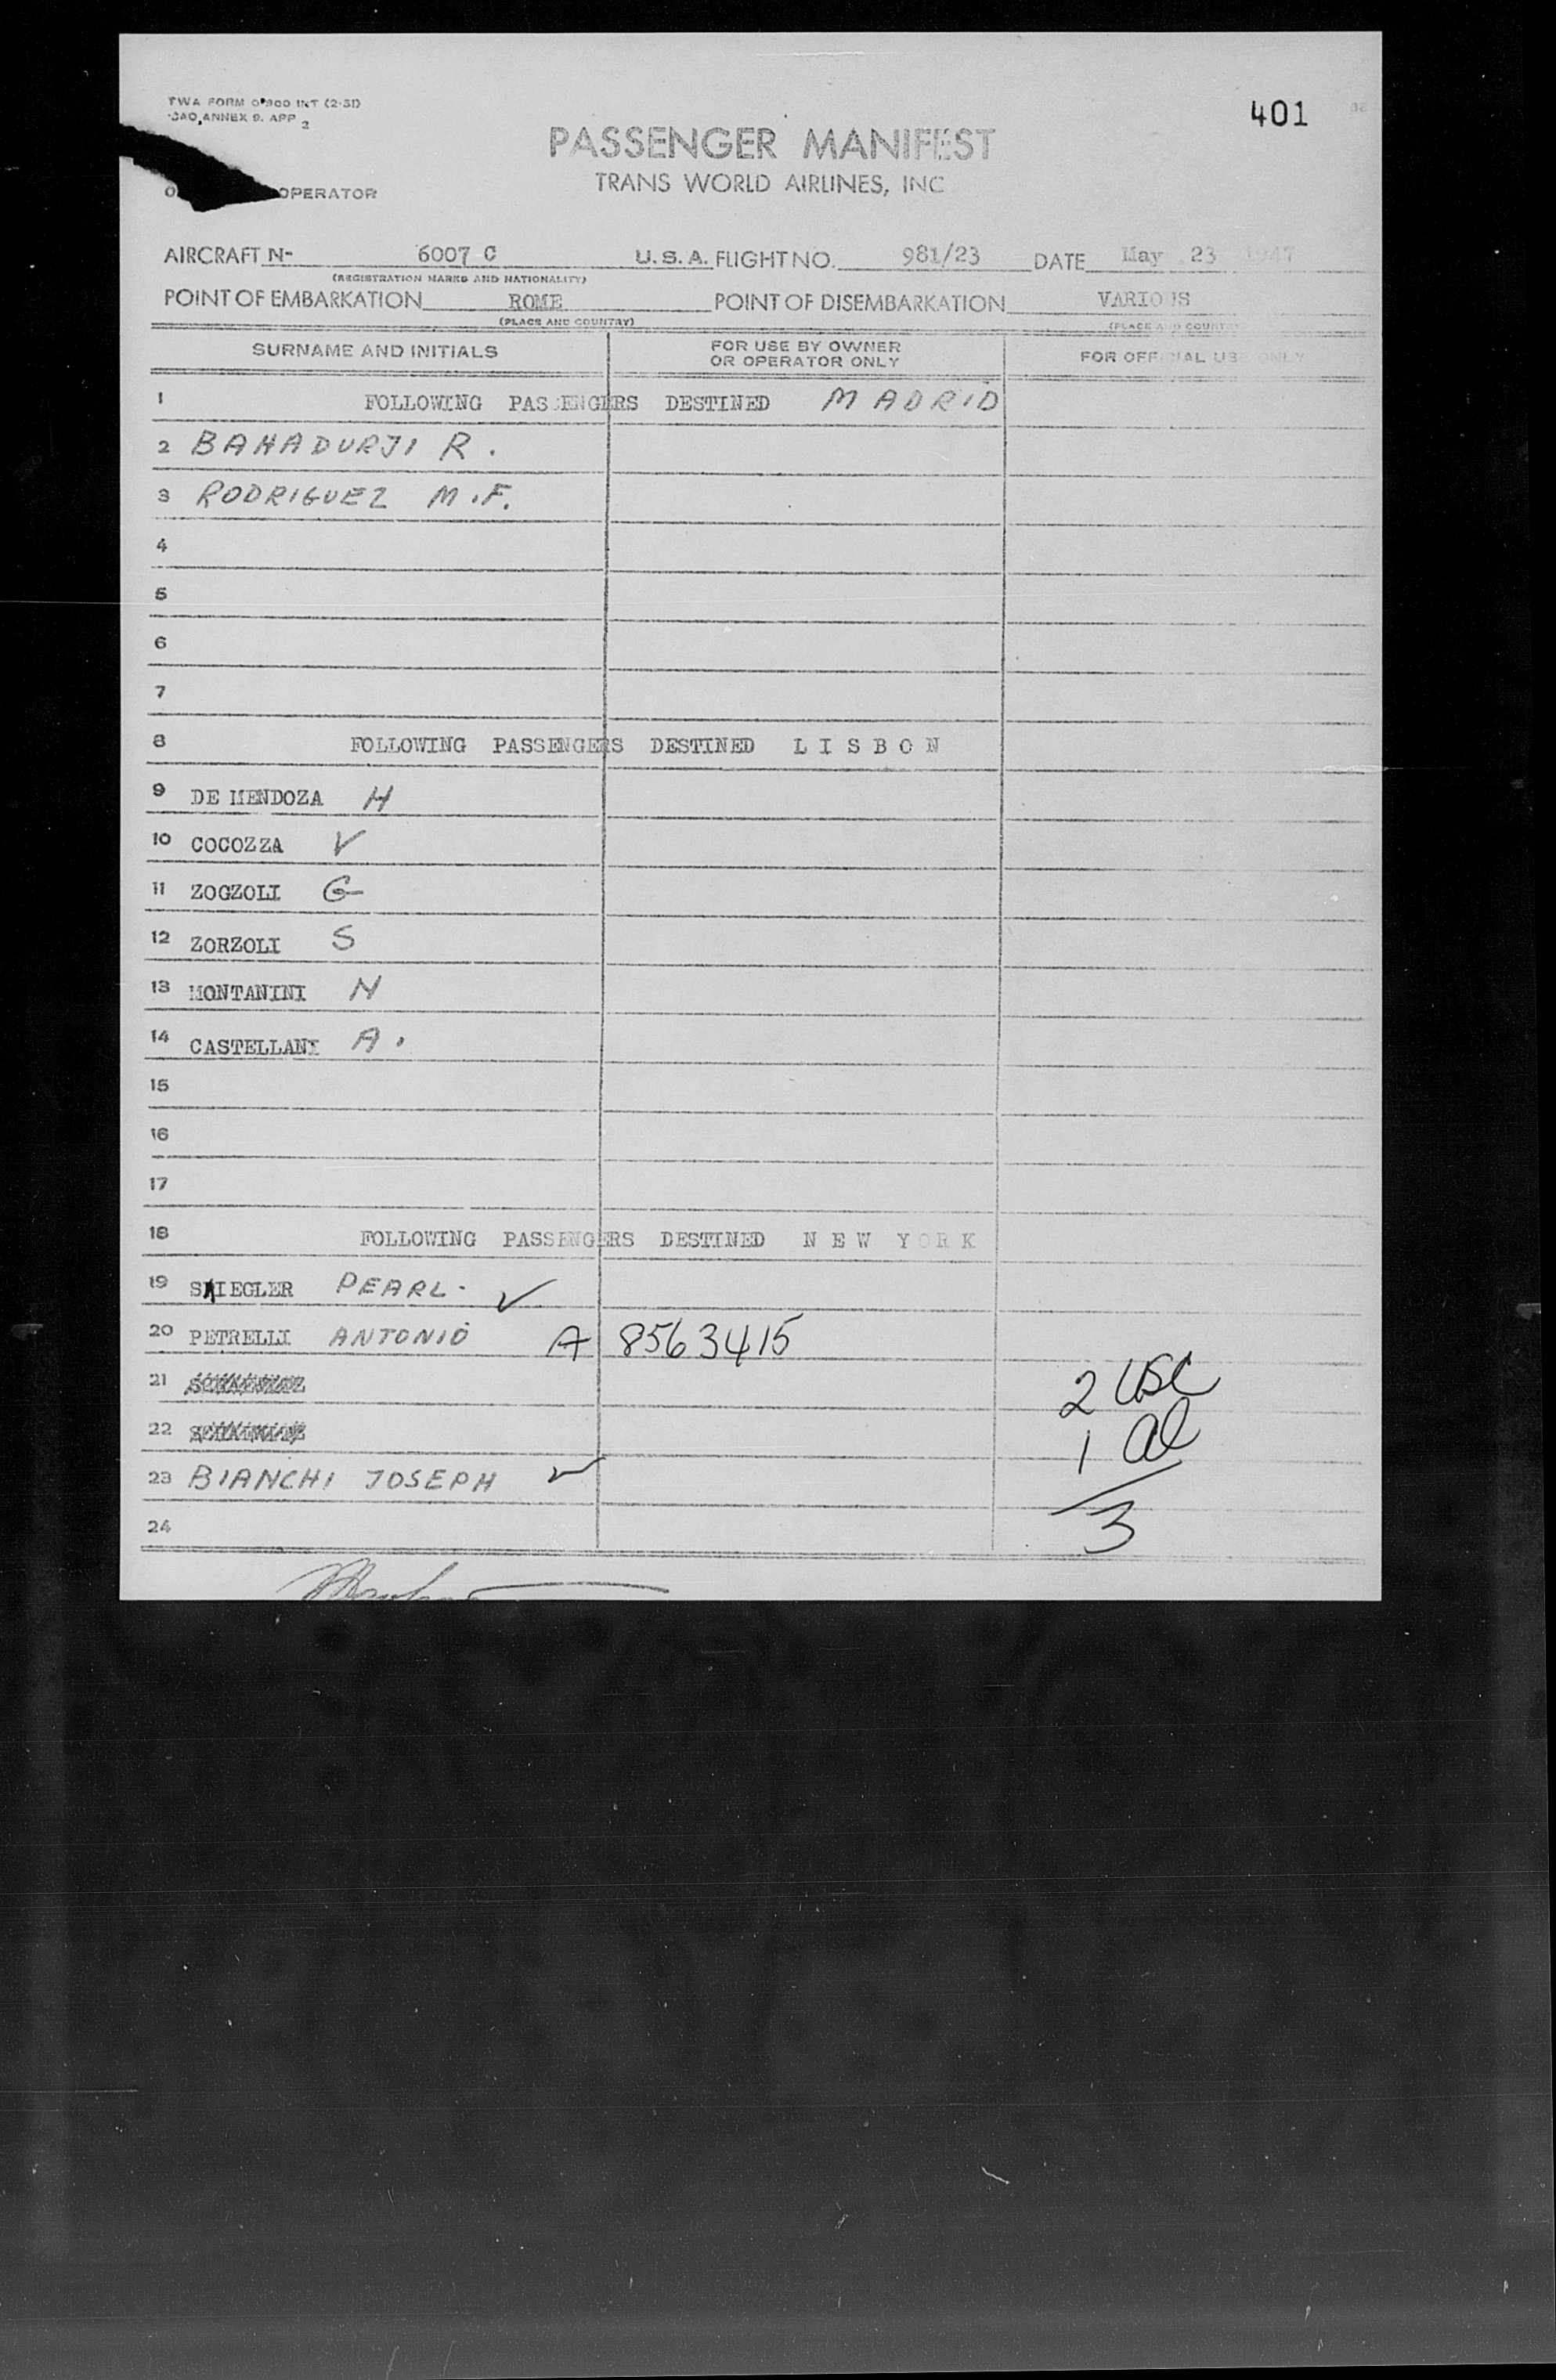 TWA FORM O-800 INT (2-51)
ICAO ANNEX 9. APP 2
401
PASSENGER MANIFEST
TRANS WORLD AIRLINES, INC
OPERATOR
AIRCRAFT N- 6007 C U.S.A. FLIGHT NO. 981/23 DATE May 23
(REGISTRATION MARKS AND NATIONALITY)
POINT OF EMBARKATION ROME POINT OF DISEMBARKATION VARIOUS
(PLACE AND COUNTRY) (PLACE AND COUNTRY
SURNAME AND INITIALS FOR USE BY OWNER OR OPERATOR ONLY FOR OFFICIAL USE ONLY
1 FOLLOWING PASSENGERS DESTINED MADRID
2 BAHADURJI R.
3 RODRIGUEZ M.F.
4
5
6
7
8 FOLLOWING PASSENGERS DESTINED L I S B O N
9 DE MENDOZA H
10 COCOZZA V
11 ZOGZOLI G
12 ZORZOLI S
13 MONTANINI N
14 CASTELLANI A.
15
16
17
18 FOLLOWING PASSENGERS DESTINED N E W Y O R K
19 IEGLER PEARL. ✓
20 PETRELLI ANTONIO A 8563415
21 2 USC
22 1 al
23 BIANCHI JOSEPH ✓
24 3